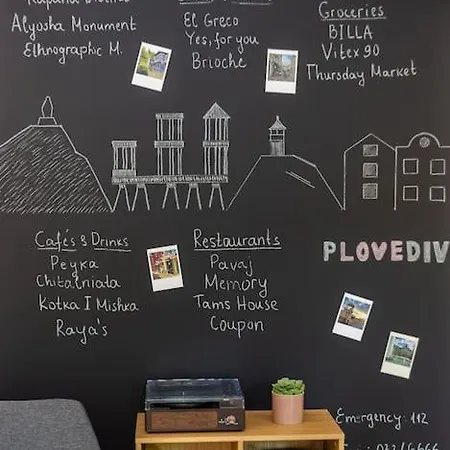 Alyosha Monument
Elhnographic M.
El Greco
Yes, for you
Brioche
Groceries
BILLA
Vitex 90
Thursday Market
Cafés & Drinks
Peyka
Chitalniata
Kotka I Mishka
Raya's
Restaurants
Pavaj
Memory
Tams House
Coupon
PLOVEDIV
Emergency: 112